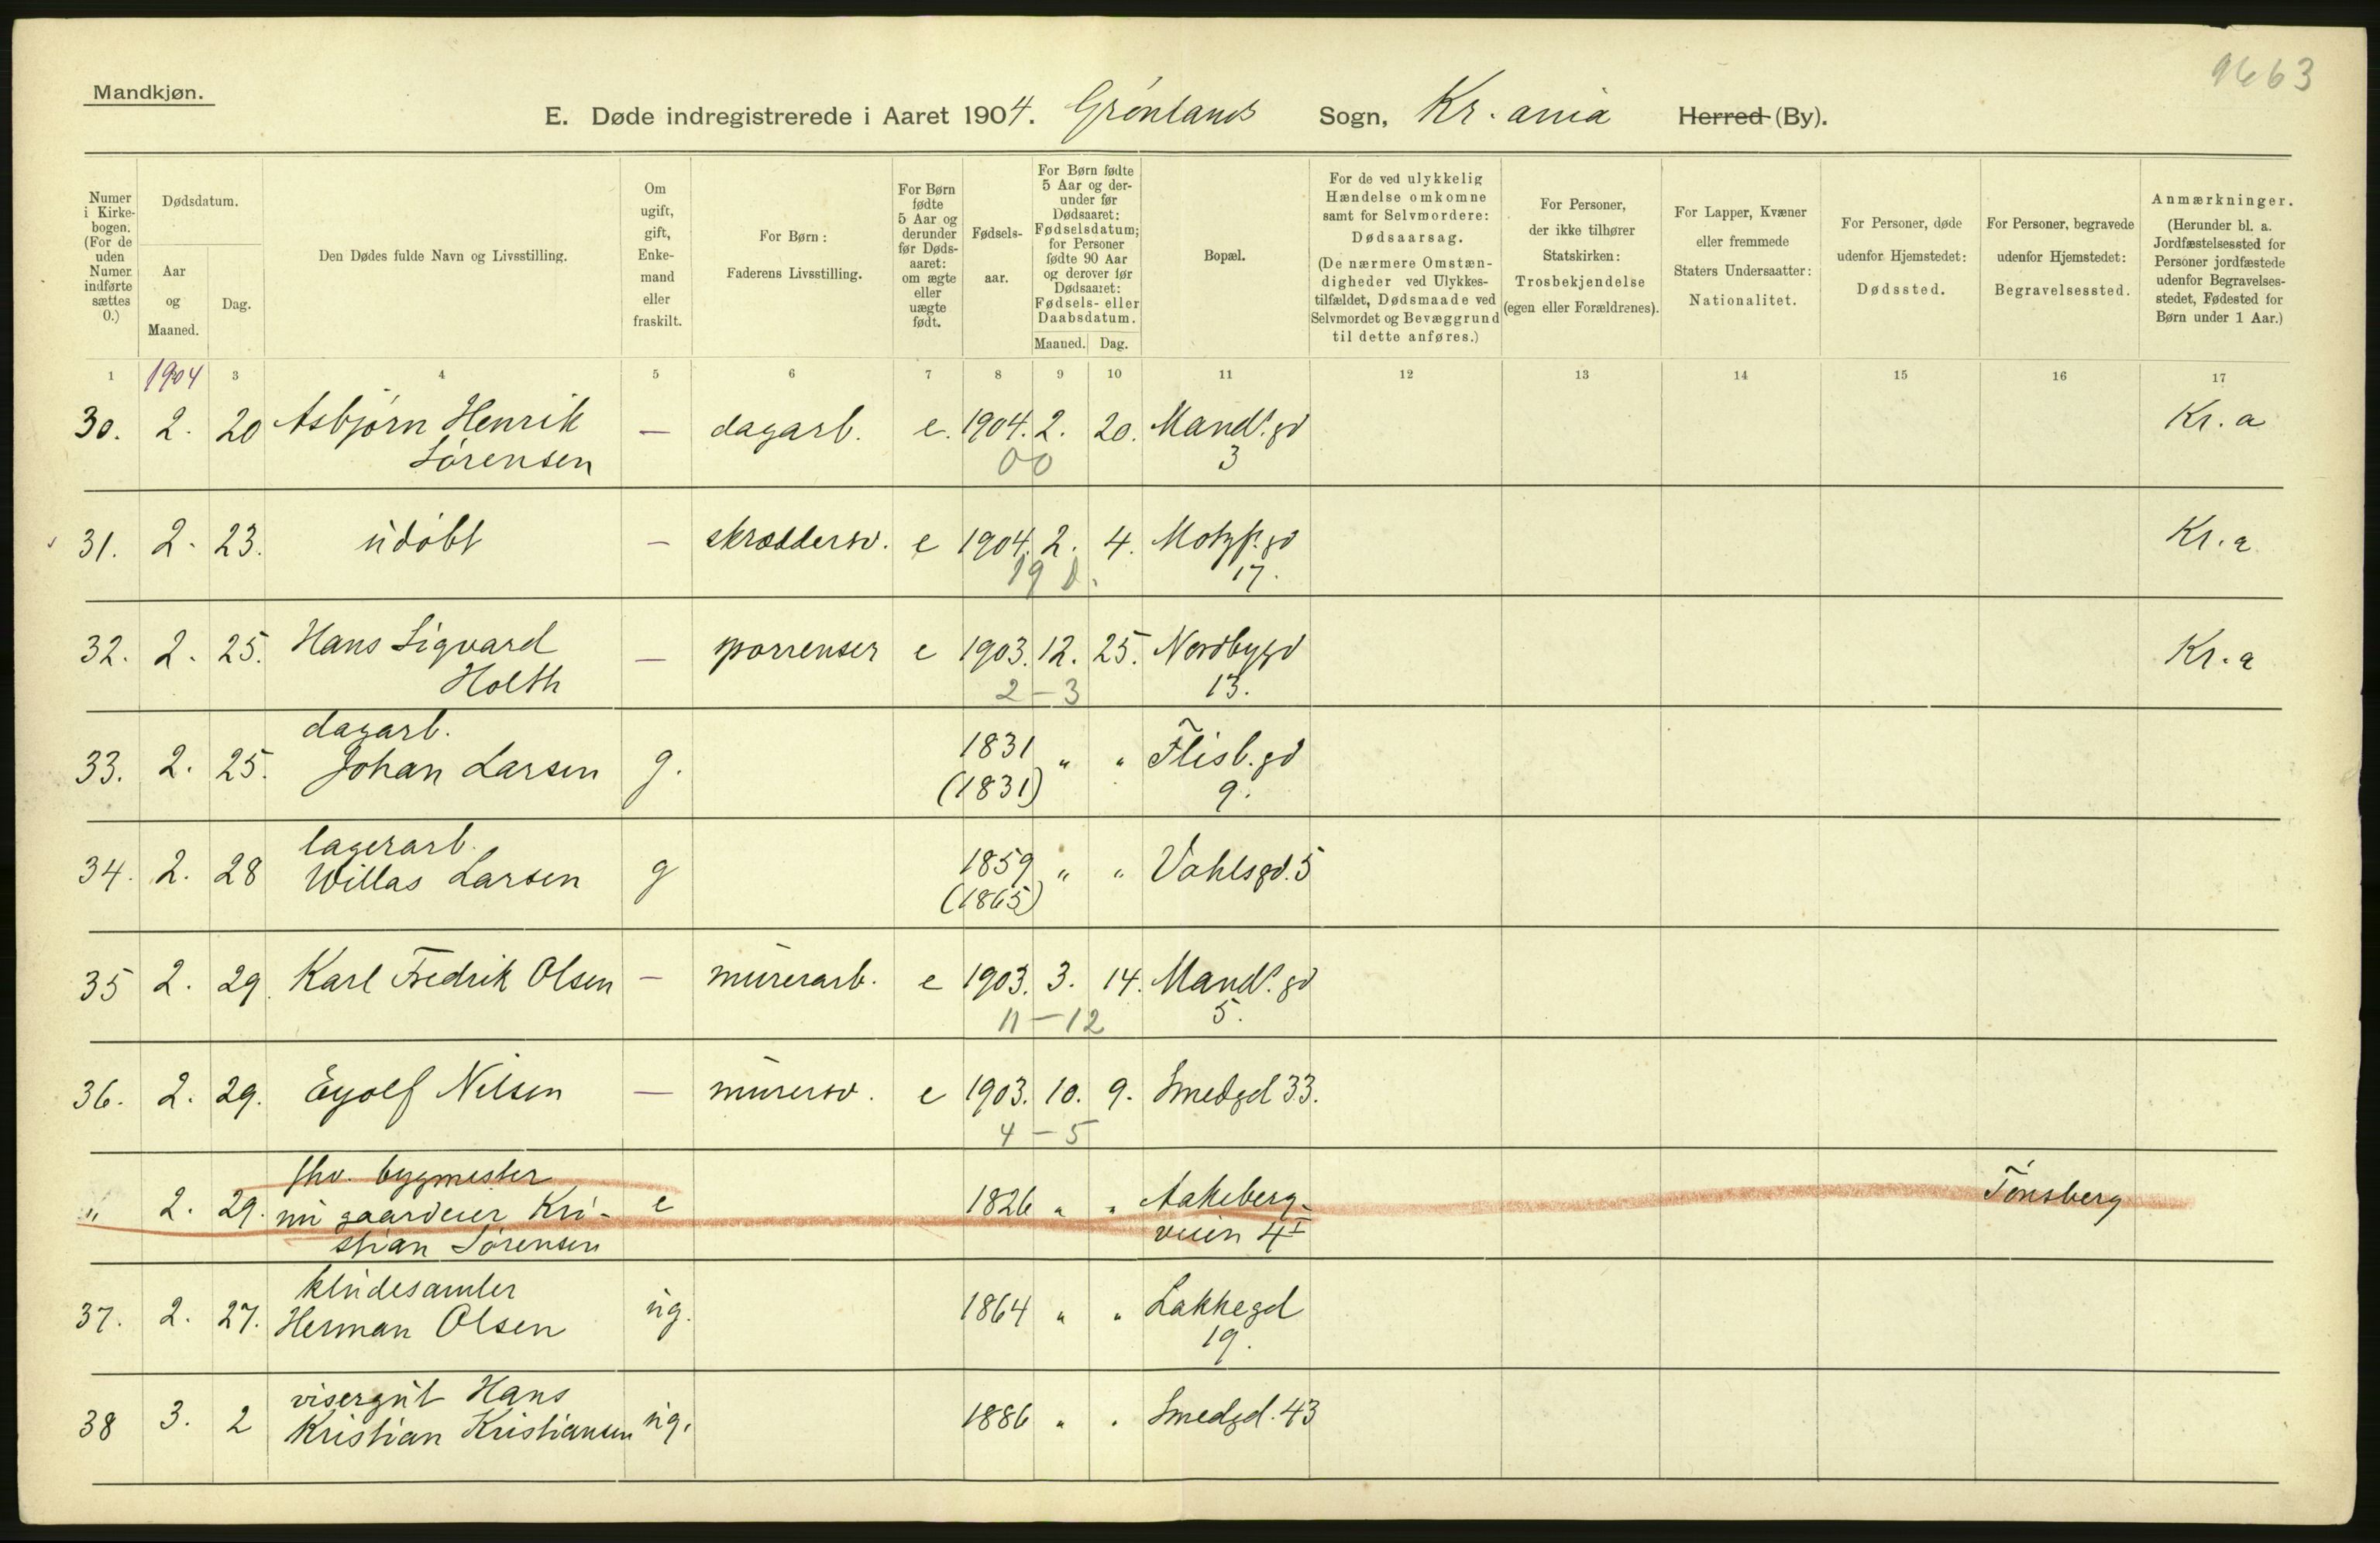 9663
Mandkjøn.
E. Døde indregistrerede i Aaret 1904. Grønlands Sogn, Kr.ania Herred (By).
Numer i Kirkebogen. (For de uden Numer indførte sættes 0.)
Dødsdatum.
Aar og Maaned.
Dag.
Den Dødes fulde Navn og Livsstilling.
Om ugift, gift, Enkemand eller fraskilt.
For Børn: Faderens Livsstilling.
For Børn fødte 5 Aar og derunder før Dødsaaret: om ægte eller uægte født.
Fødselsaar.
For Børn fødte 5 Aar og derunder før Dødsaaret: Fødselsdatum; for Personer fødte 90 Aar og derover før Dødsaaret: Fødsels- eller Daabsdatum.
Maaned. Dag.
Bopæl.
For de ved ulykkelig Hændelse omkomne samt for Selvmordere: Dødsaarsag. (De nærmere Omstændigheder ved Ulykkestilfældet, Dødsmaade ved Selvmordet og Bevæggrund til dette anføres.)
For Personer, der ikke tilhører Statskirken: Trosbekjendelse (egen eller Forældrenes).
For Lapper, Kvæner eller fremmede Staters Undersaatter: Nationalitet.
For Personer, døde udenfor Hjemstedet: Dødssted.
For Personer, begravede udenfor Hjemstedet: Begravelsessted.
Anmærkninger. (Herunder bl. a. Jordfæstelsessted for Personer jordfæstede udenfor Begravelsesstedet, Fødested for Børn under 1 Aar.)
1 1904 3 4 5 6 7 8 9 10 11 12 13 14 15 16 17
30. 2. 20 Asbjørn Henrik — dagarb. e. 1904. 2. 20. Mands.gd Kr.a
Sørensen 00 3
31. 2. 23. udøbt — skræddersv. e 1904. 2. 4. Motzf.gd Kr.a
17.
32. 2. 25. Hans Sigvard — porrenser e 1903. 12. 25. Nordbygd Kr.a
Holth 2-3 13.
dagarb.
33. 2. 25. Johan Larsen g. 1831 " " Flisb.gd
(1831) 9.
lagerarb.
34. 2. 28 Willas Larsen g 1859 " " Vahlsgd. 5
(1865)
35 2. 29. Karl Fredrik Olsen — murerarb. e 1903. 3. 14. Mands.gd
11-12 5.
36. 2. 29. Eyolf Nilsen — murersv. e 1903. 10. 9. Smedgd 33.
4-5
fhv. bygmester
" 2. 29. nu gaardeier Kri- e 1826 " " Aakeberg- Tønsberg
stian Sørensen veien 4 I
kludesamler
37. 2. 27. Herman Olsen ug. 1864 " " Lakkegd
19.
visergut Hans
38 3. 2 Kristian Kristiansen ug. 1886 " " Smedgd. 43